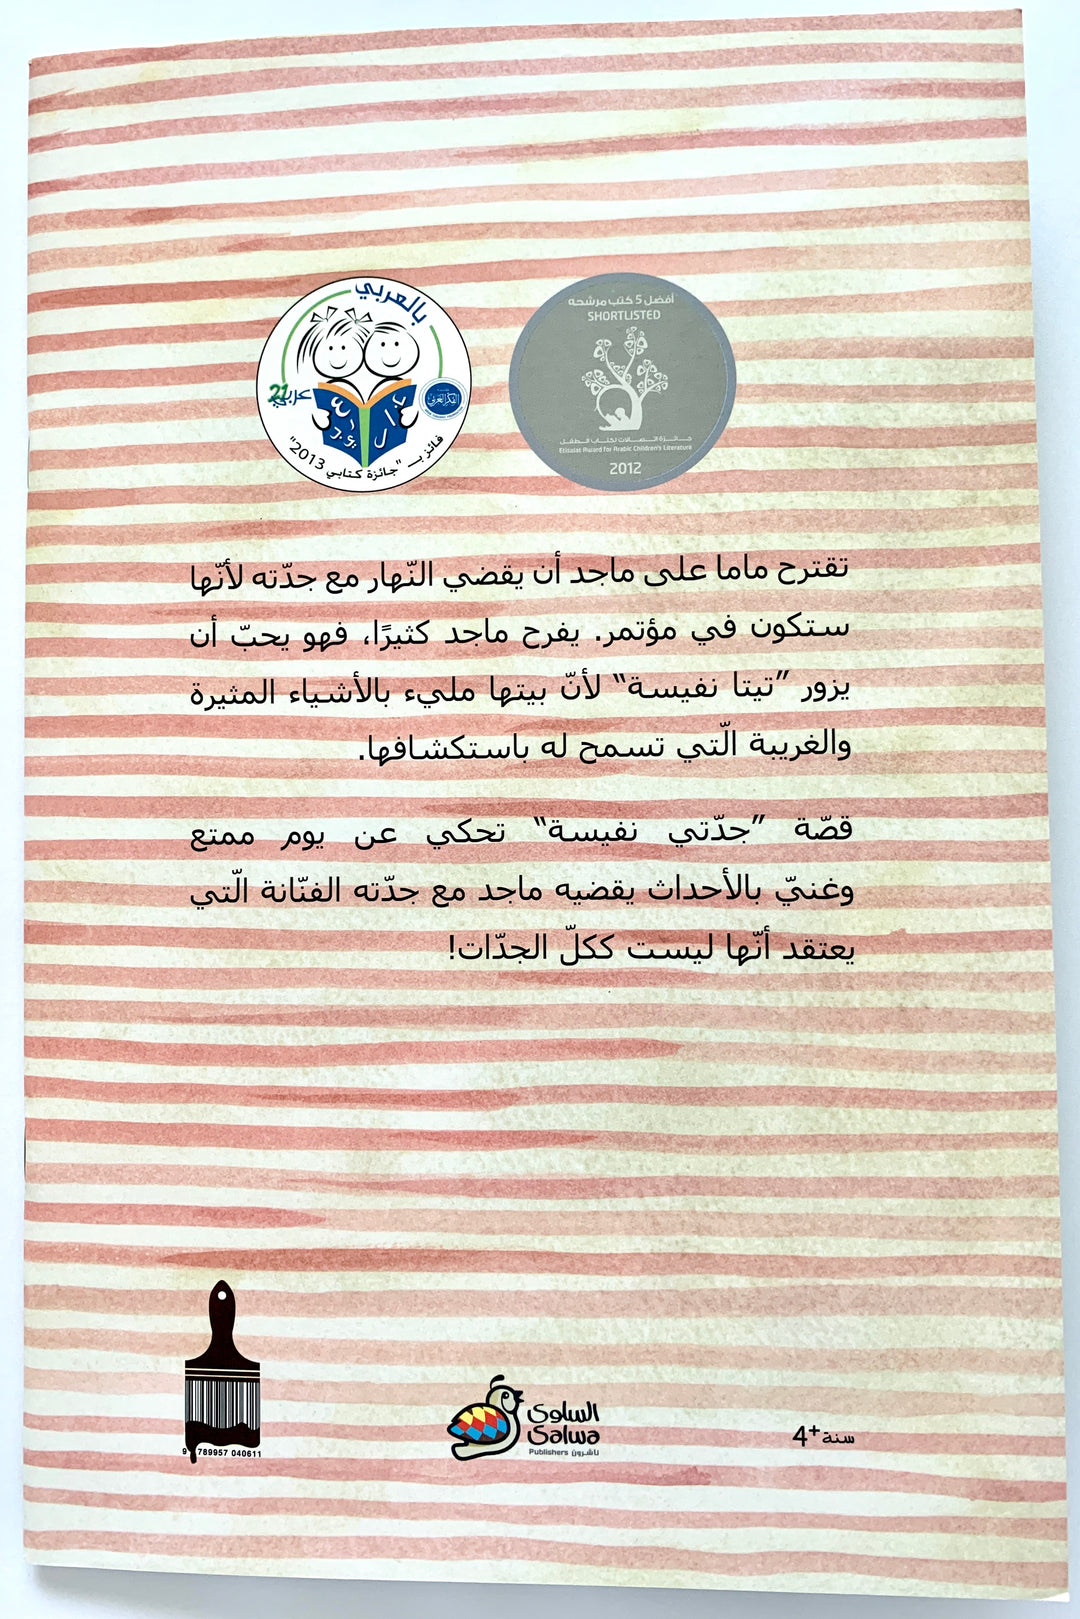 بالعربي
عربي 21
الفكر العربي
فائز بـ "جائزة كتابي 2013"
أفضل 5 كتب مرشحه
SHORTLISTED
جائزة اتصالات لكتاب الطفل
Etisalat Award for Arabic Children's Literature
2012
تقترح ماما على ماجد أن يقضي النّهار مع جدّته لأنّها
ستكون في مؤتمر. يفرح ماجد كثيرًا، فهو يحبّ أن
يزور "تيتا نفيسة" لأنّ بيتها مليء بالأشياء المثيرة
والغريبة الّتي تسمح له باستكشافها.
قصّة "جدّتي نفيسة" تحكي عن يوم ممتع
وغنيّ بالأحداث يقضيه ماجد مع جدّته الفنّانة الّتي
يعتقد أنّها ليست ككلّ الجدّات!
9 789957 040611
السلوى
Salwa
Publishers ناشرون
سنة +4